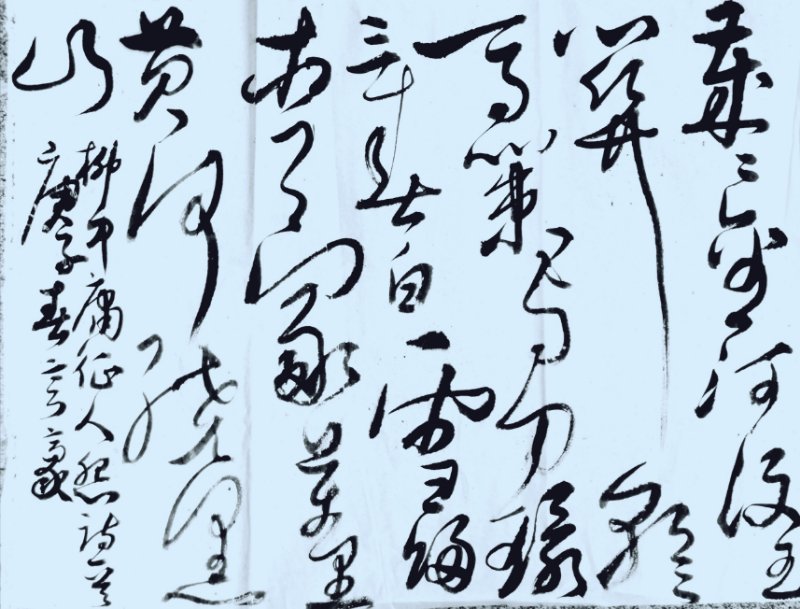 歲〻金河復玉
關朝〻
馬策与刀環
三春白雪歸
青冢萬里
黄河繞黑
山
柳中庸征人怨詩一首
庚子春